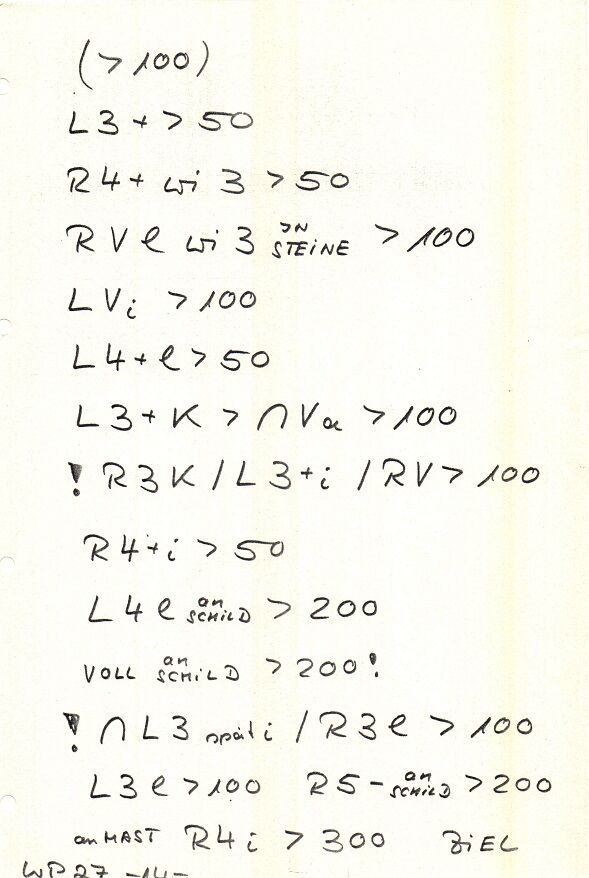 (> 100)
L3+ > 50
R4+ wi 3 > 50
RVl wi 3 IN STEINE > 100
LVi > 100
L4+l > 50
L3+K > ∩Va > 100
! R3K / L3+i / RV > 100
R4+i > 50
L4l an SCHILD > 200
VOLL an SCHILD > 200!
! ∩L3 spät i / R3l > 100
L3l > 100 R5- an SCHILD > 200
an MAST R4i > 300 ZIEL
WP27 -14-